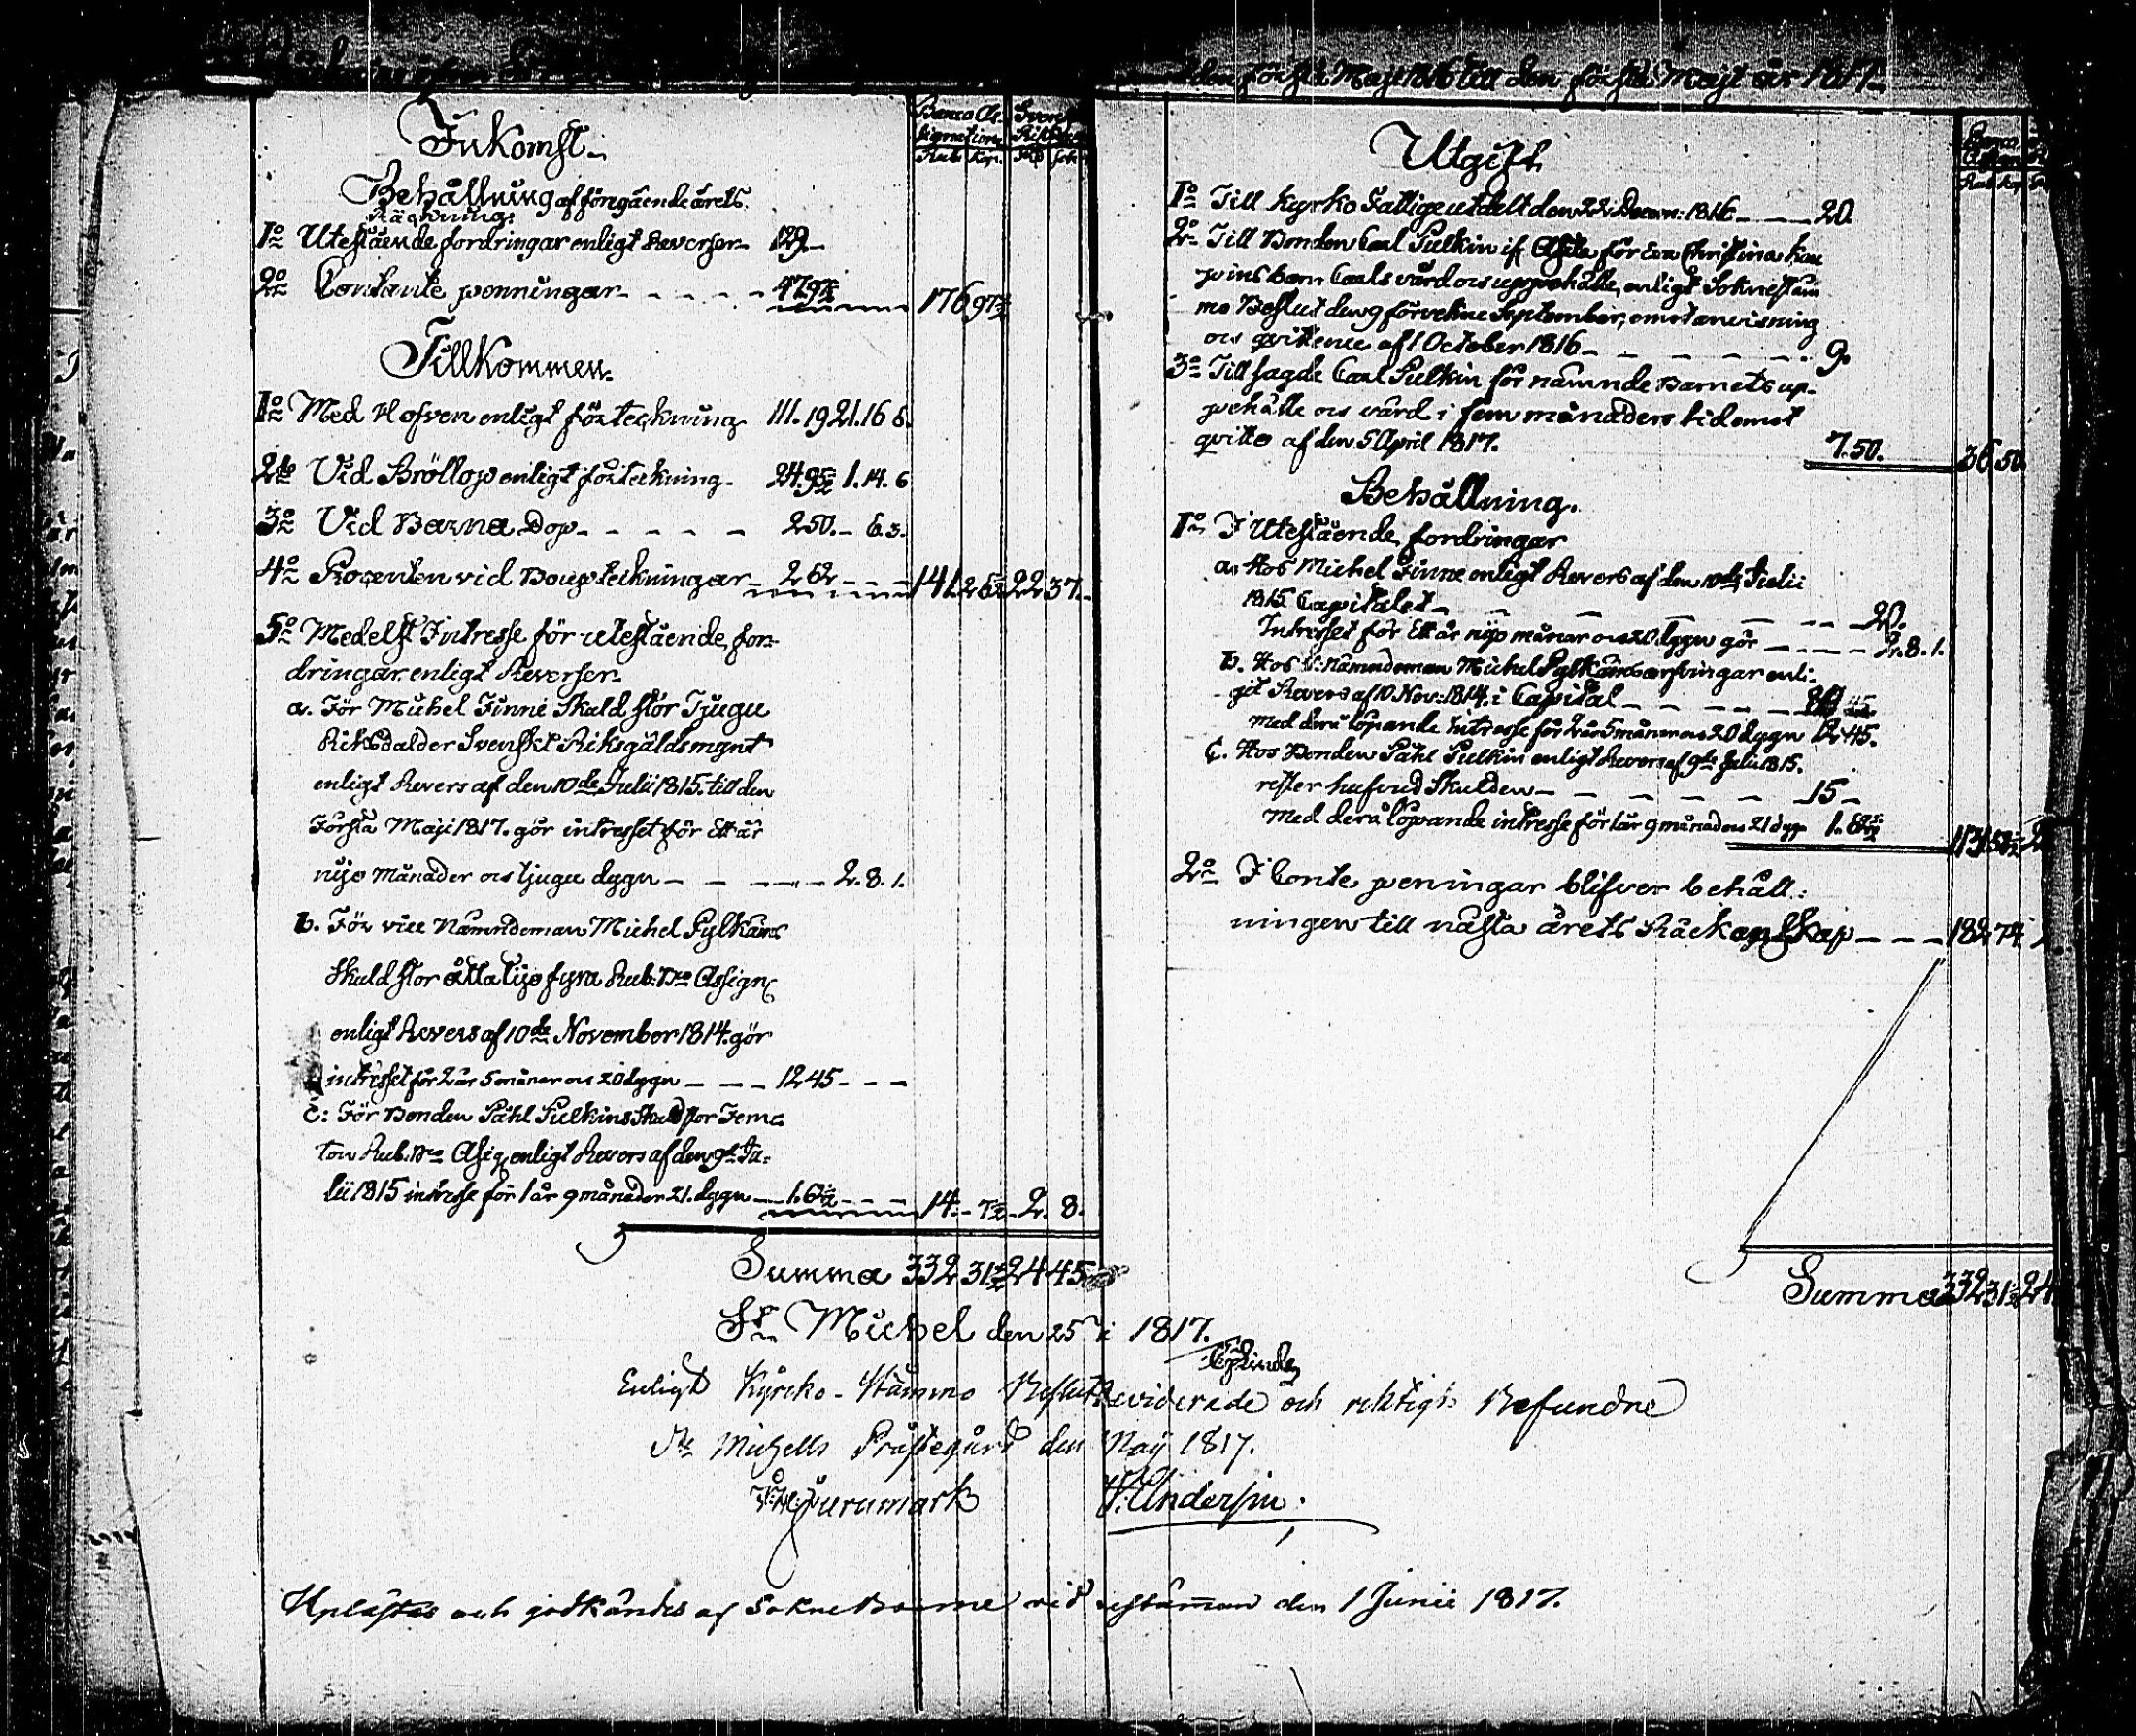 den första Maji 1816 till den första Maji år 1817.
Inkomst.
Banco As-
signation.
Rub. Kop.
Behållning af föregående årets
Räckning.
1o Utestående fordringar enligt Reverser 129.
2o Contante penningar 47.97½ 176.97½
Tillkommen.
1o Med Hofven enligt förteckning 111.19 21.16 6.
2do Vid Bröllop enligt förteckning 24.95½ 1.14.6
3o Vid Barna Dop 2.50. 6.3.
4o Procenten vid Boupteckningar 2.62 141.26½ 22 37.
5o Medelst Intresse för utestående for-
dringar enligt Reverser
a. För Michel Finne Skuld stor Tjugu
Riksdalder Svenskt Riksgäldsmynt
enligt Revers af den 10de Julii 1815. till den
Första Maji 1817. gör intresset för Ett år
nijo månader och tjugu dygn 2.8.1.
b. För vice Nämndeman Michel Pylkäins
Skuld stor åttatijo fyra Rub. Bco Assign
enligt Revers af 10de November 1814. gör
intresset för 2 år 5 månar och 20 dygn 12 45
C: För Bonden Påhl Pulkins Skuld stor Fem
ton Rub. Bco Asig. enligt Revers af den 9de Ju-
lii 1815 intresse för 1 år 9 månader 21. dygn 1.62½ 14. 7½ 2. 8.
Summa 332 31½ 24 45
Utgift
Banco
Rub Kop
1o Till Kyrko Fattige utdelt den 22 Decem: 1816 20.
2o Till Bonden Carl Pulkin för Christina
pins barn Carls vård och uppehälle, enligt Sokneståm
mo Beslut den 9 förvekne September, emot anvisning
och qvittence af 1 October 1816 9.
3o Till sagde Carl Pulkin för nämnde Barnets up-
pehälle och vård i fem månaders tid emot
qvitto af den 5 April 1817. 7.50. 36 50.
Behållning.
1o I Utestående fordringar
a. Hos Michel Finne enligt Revers af den 10de Julii
1815 Capitalet 20.
Intresset för Ett år nijo månar och 20 dygn gör 2.8.1.
b. Hos V. Nämndeman Michel Pylkäins arfvingar enli-
git Revers af 10 Nov: 1814. i Capital
med derå löpande Intresse för 2 år 5 månar och 20 dygn 12 45.
C. Hos Bonden Påhl Pulkin enligt Revers af 9de Julii 1815.
rester hufvud Skulden 15
Med derå löpande intresse för 1 år 9 månader 21 dygn 1.62½
2o I Conte peningar blifver behåll:
ningen till nästa årets Räckenskap 182 74
Summa 332 31½ 24
St Michel den 25 1817.
Enligt Kyrcko-Stämmo Beslut Reviderade och riktigt Befundne
St Michells Prästegård den May 1817.
Furumark
Andersin.
Uplästes och godkändes af Sokneboerne vid stämman den 1 Junii 1817.